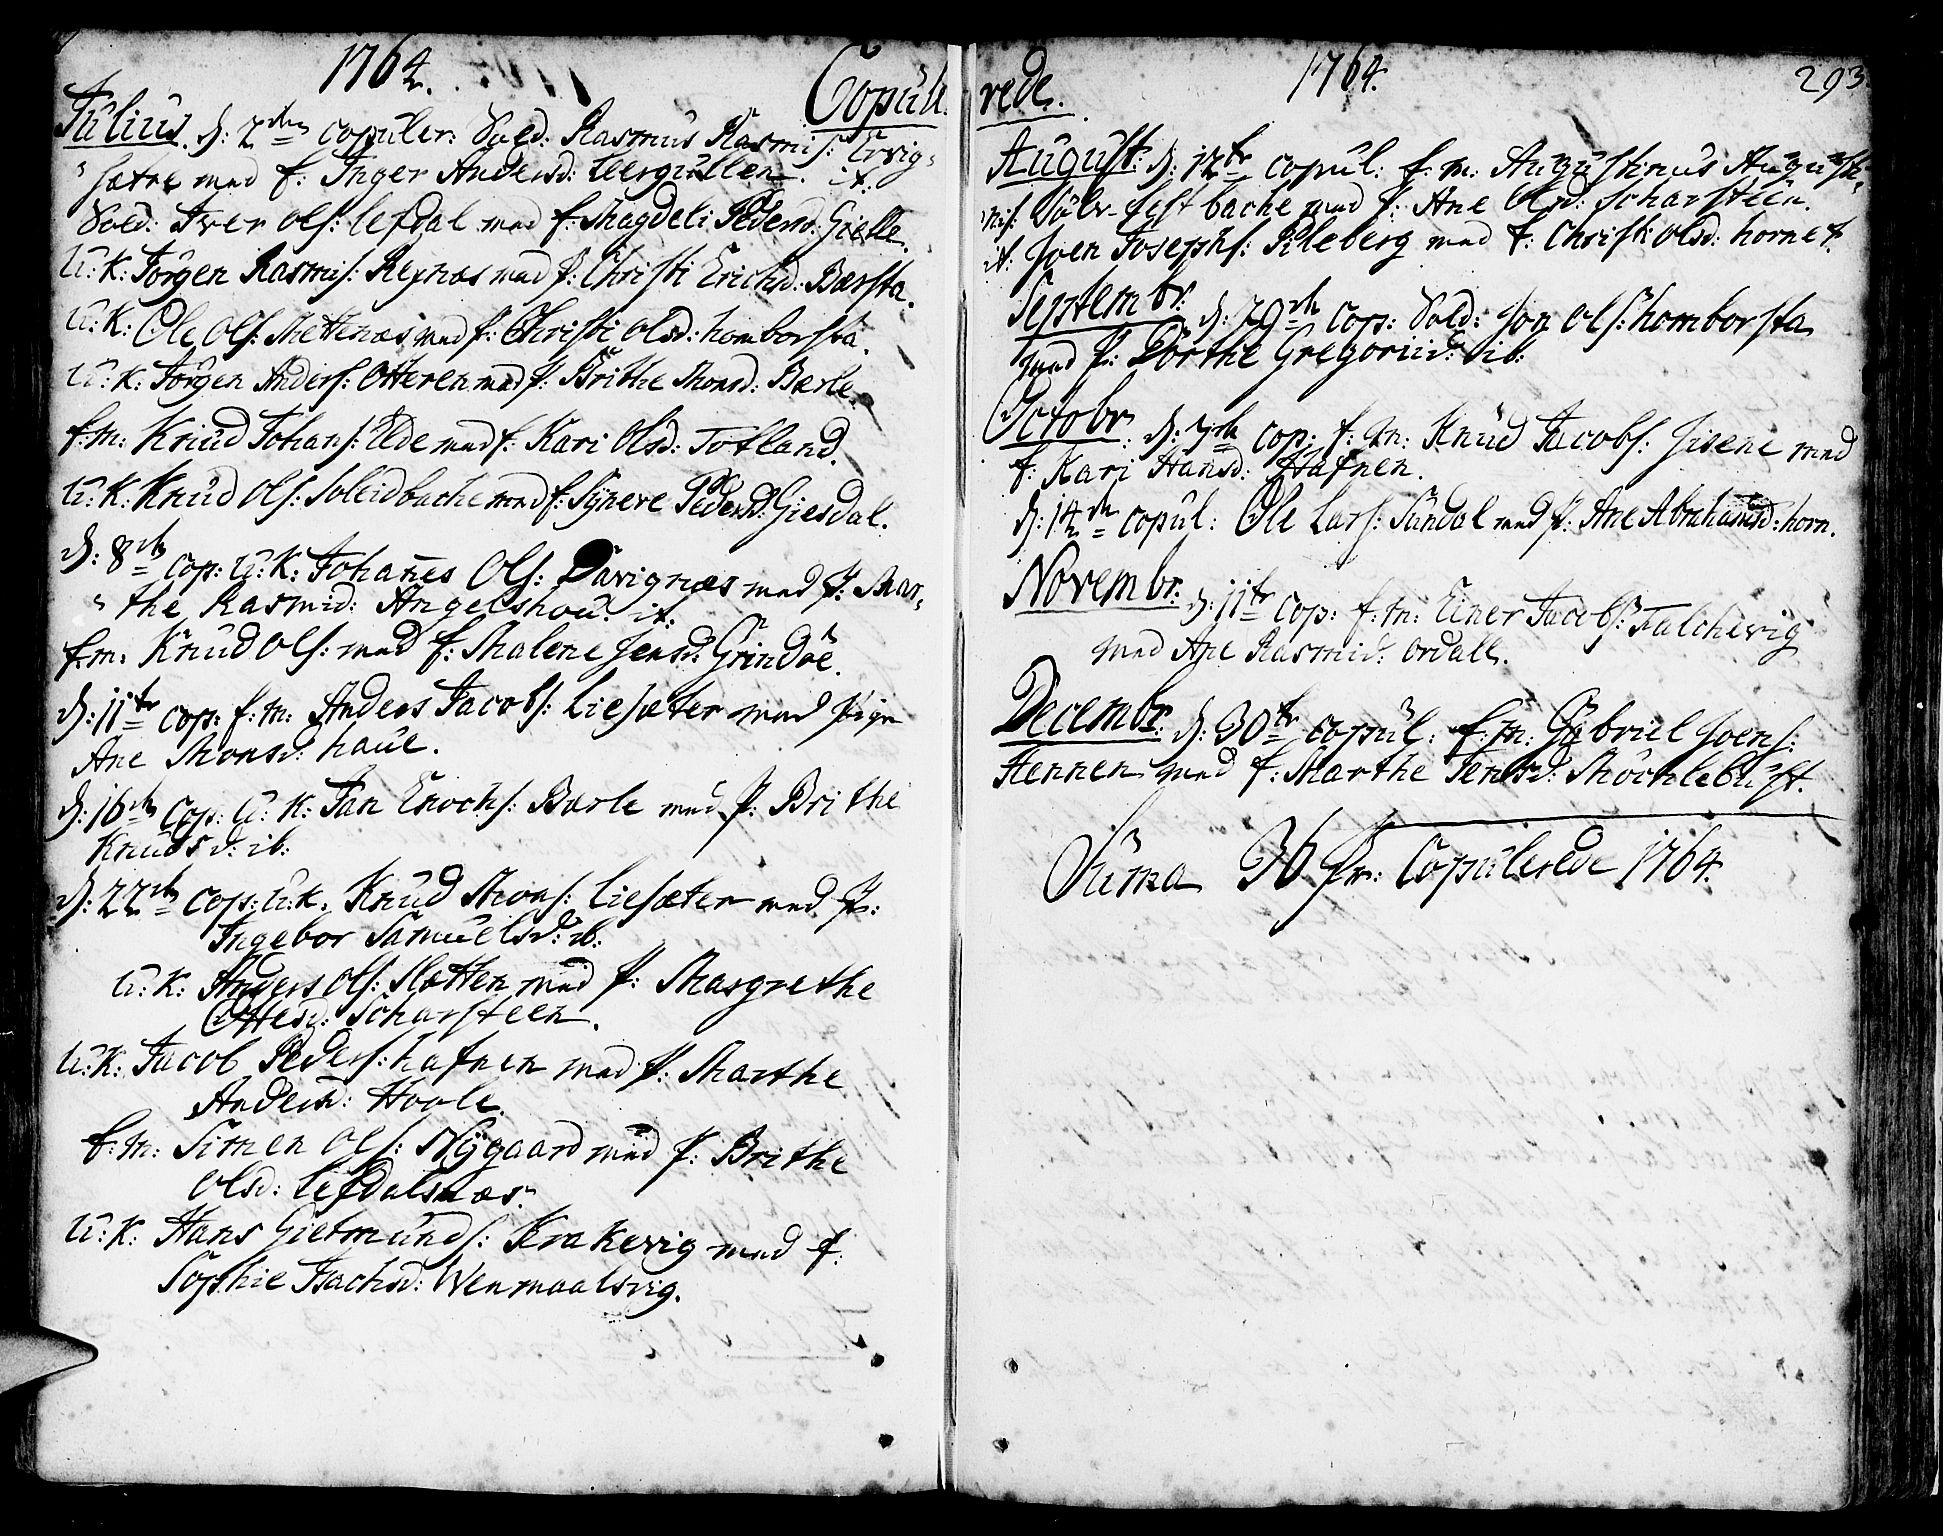 1764. Copul
Julius. d: 2den copuler: Sold: Rasmus Rasmis: Ervig-
sætre med f: Inger Andersd: Leergullen. it.
Sold: Iver Ols: Lefdal med f: Magdeli Pedersd: Gielle.
U: K: Jörgen Rasmis: Reynæs med P: Christi Erichsd: Barsta.
U: K: Ole Ols: Mettenæs med f: Christi Olsd: homborsta.
U: K: Jörgen Anders: Otteren med P: Brithe Monsd: Barle.
f: m: Knud Johans: Elde med f: Kari Olsd: Totland.
U: K: Knud Ols: Soleidbache med f: Syneve Pedersd: Giesdal.
d: 8de cop: U: K: Johañes Ols: Davignæs med P: Mar-
the Rasmid: Angelshou. it.
f: m: Knud Ols: med f: Malene Jensd: Grindöe.
d: 11te cop: f: m: Anders Jacobs: Liesæter med Pige
Ane Monsd: haue.
d: 16de cop: U: K: Jan Enochs: Barle med P: Brithe
Knudsd: ib:
d: 22de cop: U: K: Knud Mons: Liesæter med P:
Ingebor Samuelsd: ib:
U: K: Anders Ols: Slætten med P: Margrethe
Ottesd: Scharsteen.
U: K: Jacob Peders: hafnen med P: Marthe
Andersd: Hoole.
f: m: Simen Ols: Nÿgaard med P: Brithe
Olsd: Lefdalsnæs.
U: K: Hans Gietmunds: Krakevig med f:
Sophie Isachsd: Wenmaalsvig.
rede. 1764. 293.
August: d: 12te copul: f: m: Augustinus Augusti-
nis: Sölv-Festbache med f: Ane Olsd: Scharsteen.
it: Joen Josephs: Rileberg med f: Christi Olsd: hornef.
Septembr: d: 29de cop: Sold: Jon Ols: homborsta
med P: Dorthe Gregoriid: ib:
Octobr. d: 7de cop: f: m: Knud Jacobs: Sisene med
f: Kari Hansd: Hafnen.
d: 14de copul: Ole Lars: Sundal med P: Ane Abrahamsd: horn.
Novembr: d: 11te cop: f: m: Einer Jacobs: Falchevig
med Ane Rasmid: Ordall.
Decembr: d: 30te copul: f: m: Gabriel Joens:
Hennen med f: Marthe Jensd: Mochlebust.
Suma 36 Pr: Copulerede 1764.